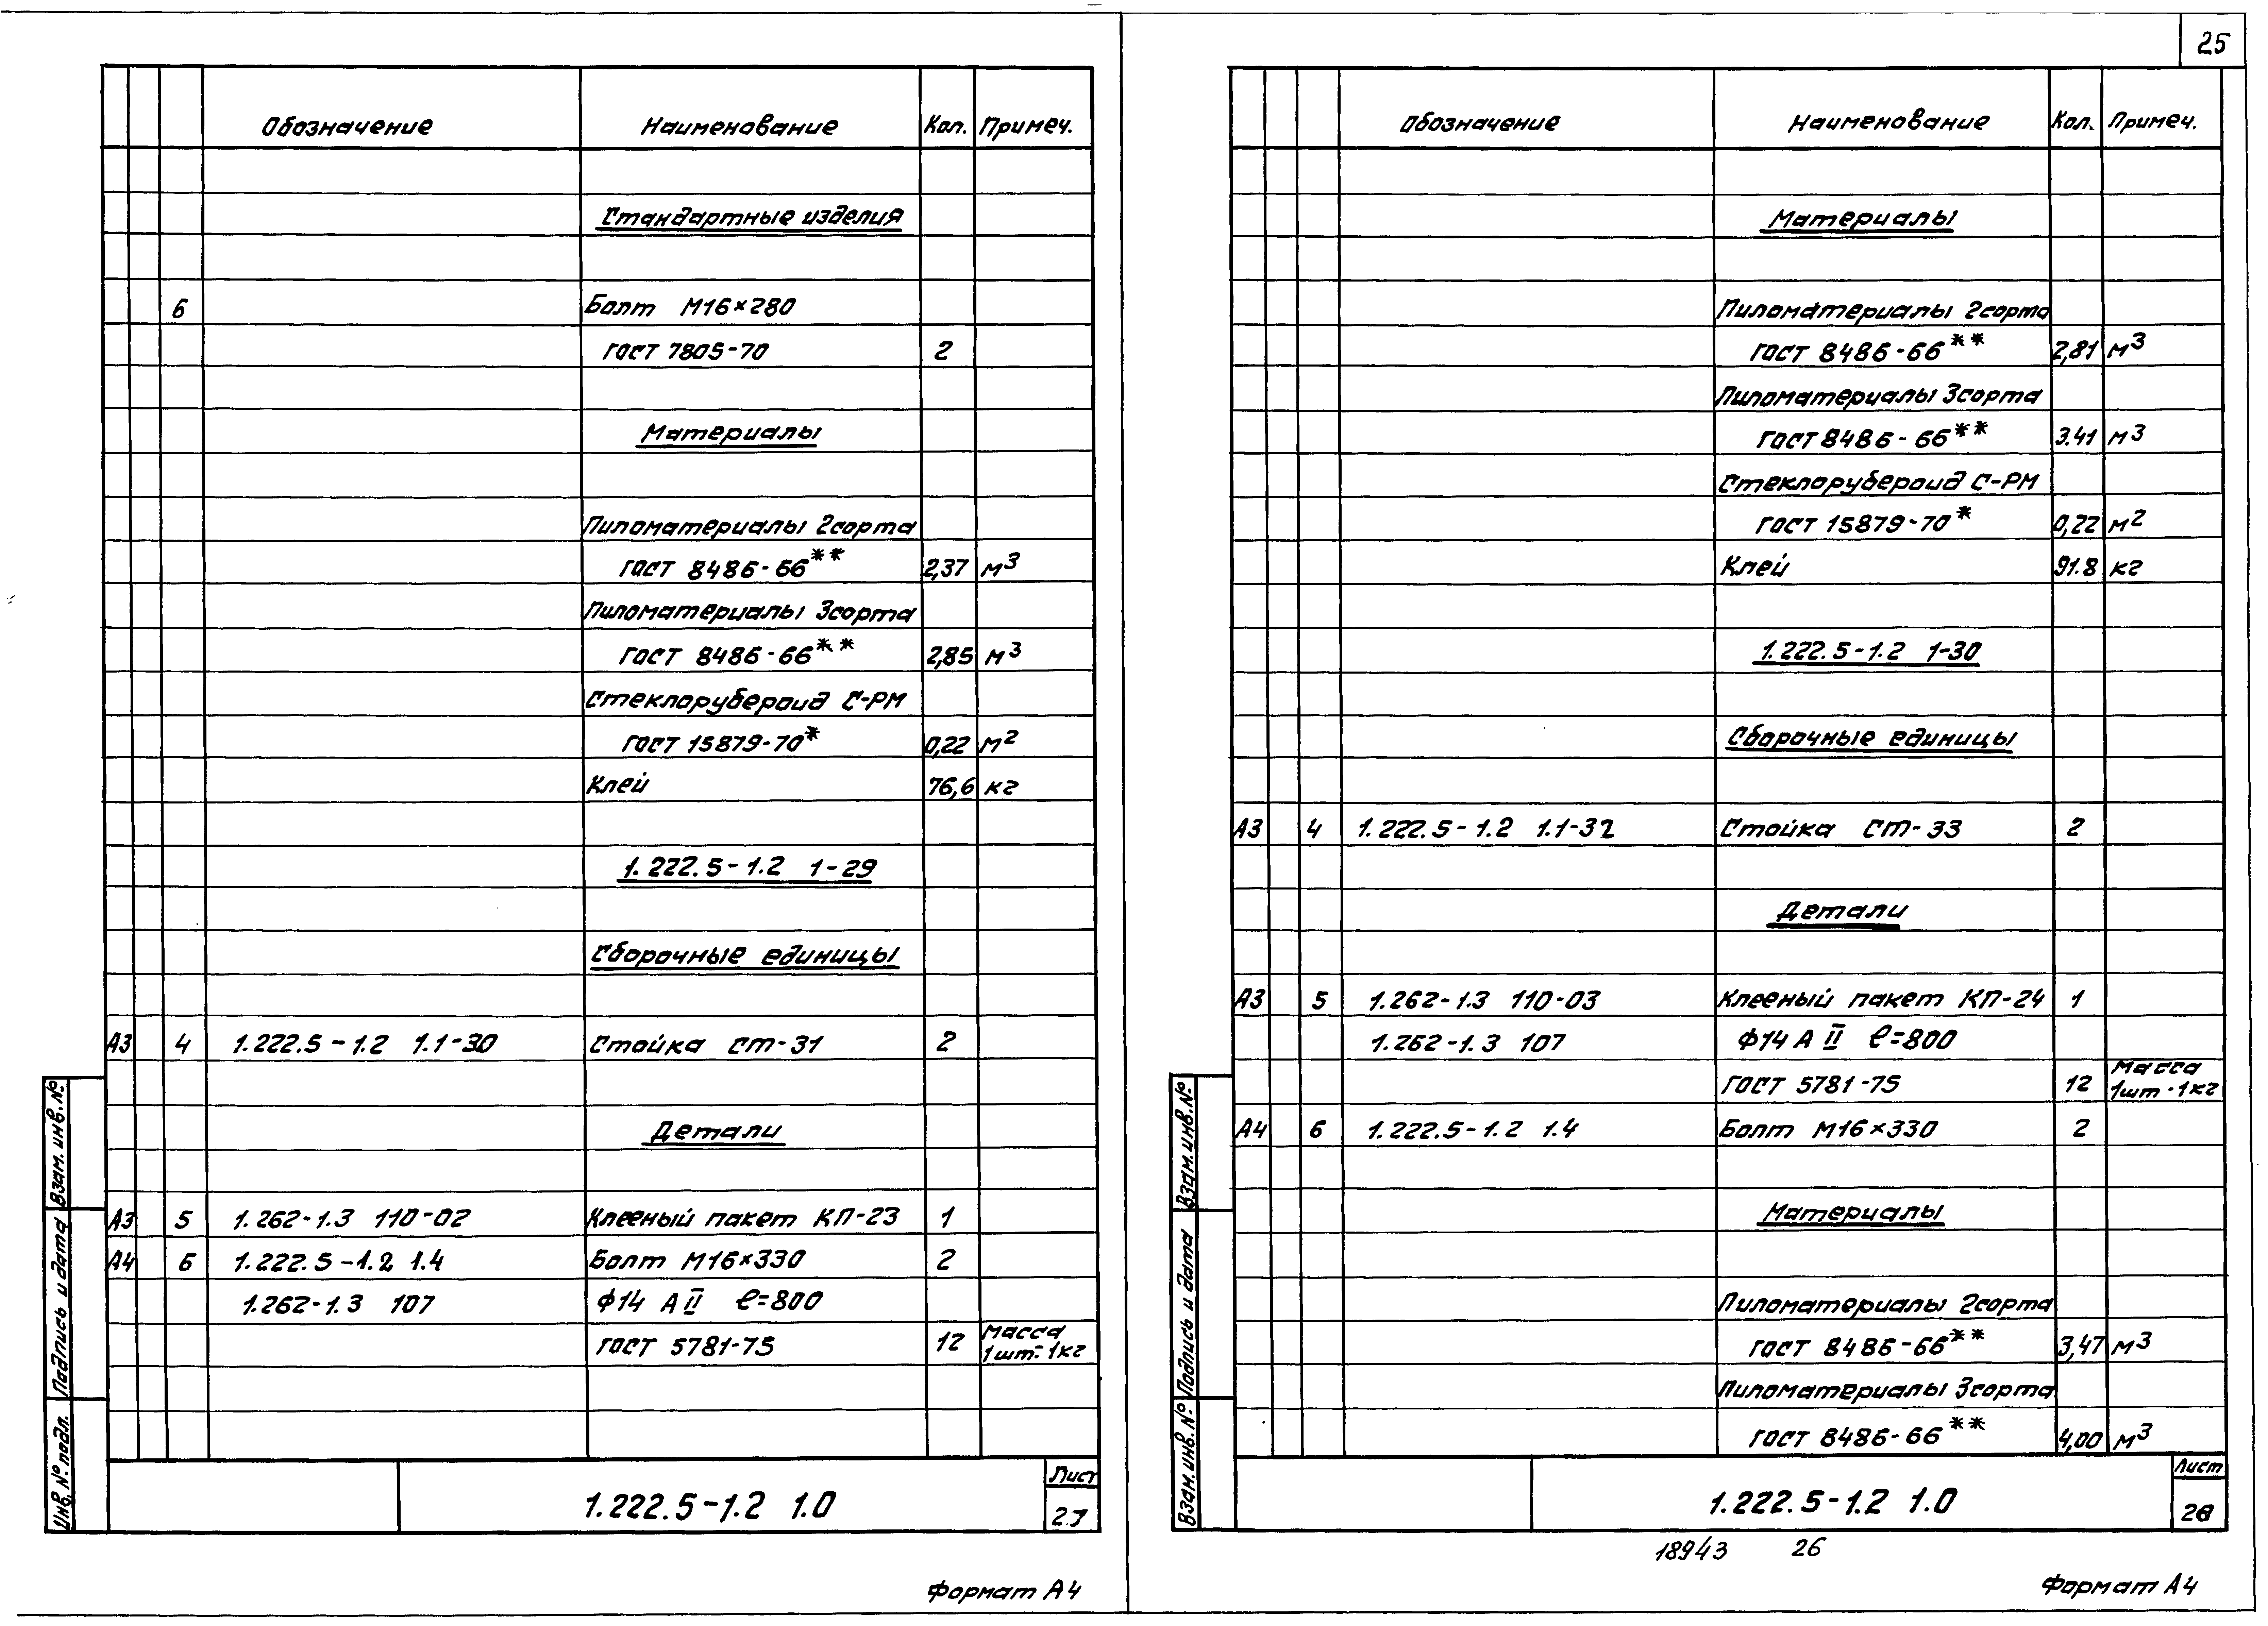 25
Обозначение Наименование Кол. Примеч.
Стандартные изделия
6 Болт М16×280
ГОСТ 7805-70 2
Материалы
Пиломатериалы 2сорта
ГОСТ 8486-66** 2,37 м3
Пиломатериалы 3сорта
ГОСТ 8486-66** 2,85 м3
Стеклорубероид С-РМ
ГОСТ 15879-70* 0,22 м2
Клей 76,6 кг
1.222.5-1.2 1-29
Сборочные единицы
А3 4 1.222.5-1.2 1.1-30 Стойка СТ-31 2
Детали
А3 5 1.262-1.3 110-02 Клееный пакет КП-23 1
А4 6 1.222.5-1.2 1.4 Болт М16×330 2
1.262-1.3 107 Ф14 А II ℓ=800
ГОСТ 5781-75 12 Масса
1шт.-1кг
Взам. инв. №
Подпись и дата
Инв. № подл.
1.222.5-1.2 1.0
Лист
27
Формат А4
Обозначение Наименование Кол. Примеч.
Материалы
Пиломатериалы 2сорта
ГОСТ 8486-66** 2,81 м3
Пиломатериалы 3сорта
ГОСТ 8486-66** 3.41 м3
Стеклорубероид С-РМ
ГОСТ 15879-70* 0,22 м2
Клей 91.8 кг
1.222.5-1.2 1-30
Сборочные единицы
А3 4 1.222.5-1.2 1.1-32 Стойка СТ-33 2
Детали
А3 5 1.262-1.3 110-03 Клееный пакет КП-24 1
1.262-1.3 107 Ф14 А II ℓ=800
ГОСТ 5781-75 12 Масса
1шт-1кг
А4 6 1.222.5-1.2 1.4 Болт М16×330 2
Материалы
Пиломатериалы 2сорта
ГОСТ 8486-66** 3,47 м3
Пиломатериалы 3сорта
ГОСТ 8486-66** 4,00 м3
Взам. инв. №
Подпись и дата
Взам. инв. №
1.222.5-1.2 1.0
Лист
28
18943 26
Формат А4